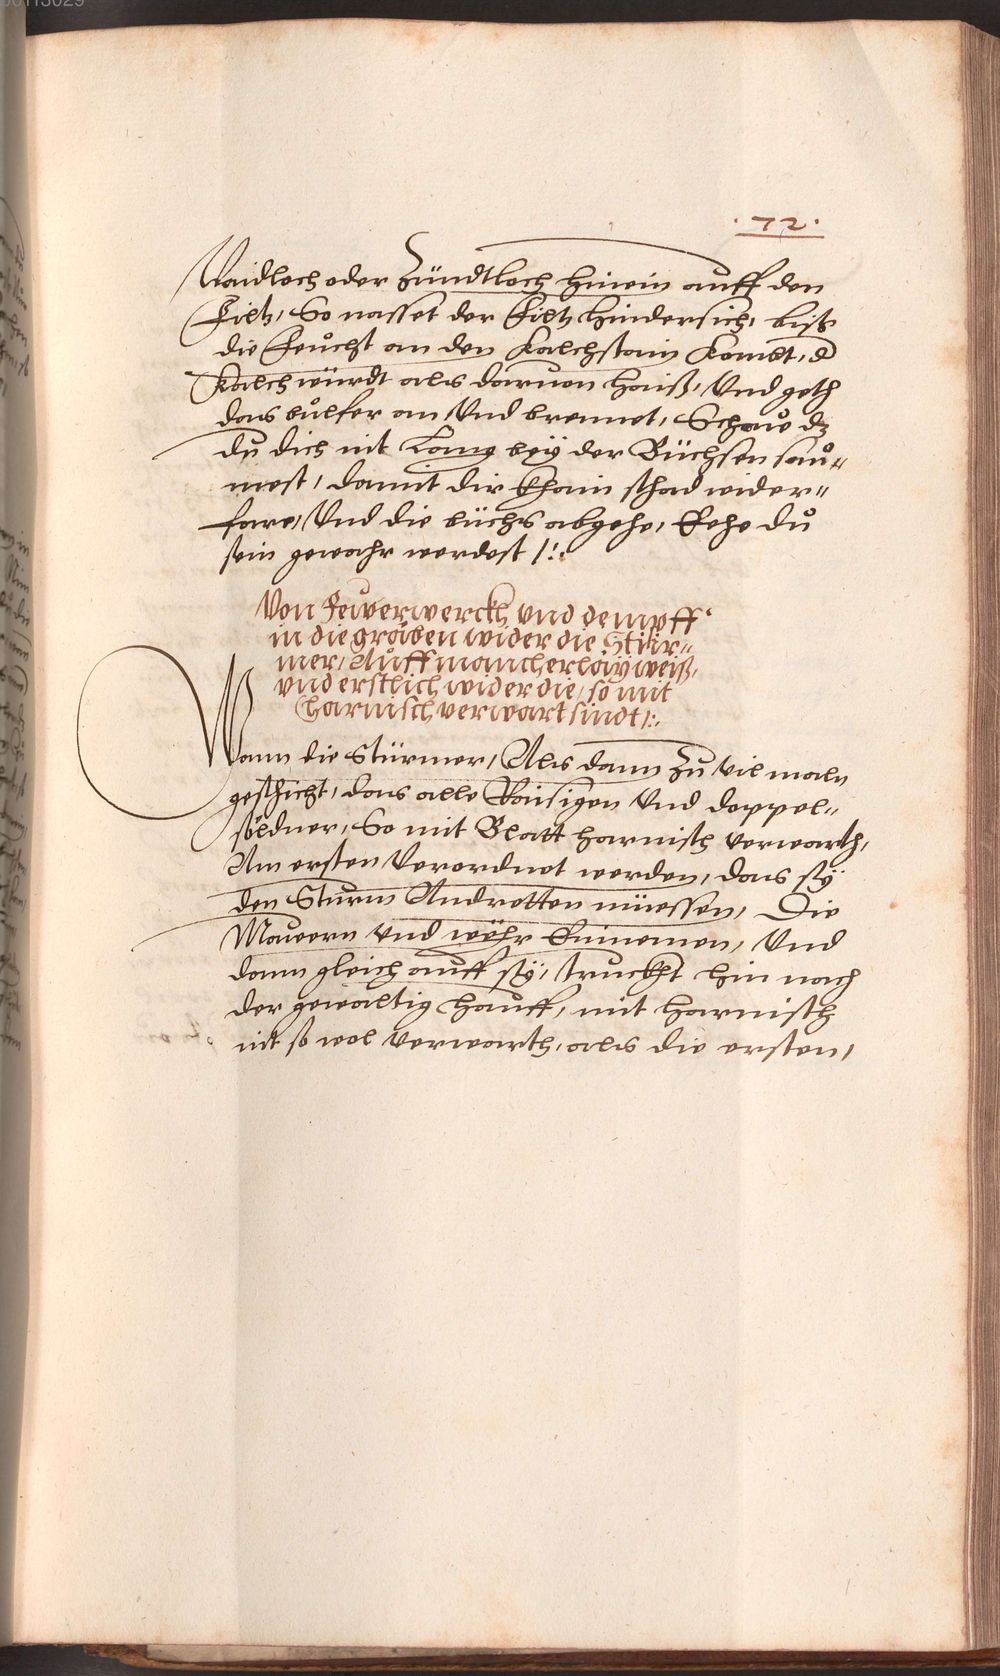 00113029
. 72 .
Waidloch oder Zündtloch hinein auff den
Filtz, So nasset der Filtz hindersich, biß
die feůcht an den Kalchstain kombt, d
Kalch würdt als daruon haiß, Vnd geth
das bůlfer an Vnd brennet, Schawe dz
du dich nit Lang beÿ der Büchsen sau„
mest, damit dir khain schad wider„
fare, Vnd die büchs abgehe, Eehe dů
sein gewahr werdest /:.
Von Feuwerwerckh vnd dempff
in die gräben wider die Stür„
mer, Auff mancherlaÿ weiß,
vnd erstlich wider die, so mit
Harnisch verwart sindt /:.
Wann die Stürmer, Als dann zu vil maln
geschicht, das alle Raisigen Vnd doppel„
söldner, So mit Blatt harnisch verwarth,
Am ersten Verordnet werden, das sÿ
den Sturm Andretten müessen, Die
Mauern vnd wöhr Einnemen, Vnd
dann gleich auff sÿ, truckht hin nach
der gewaltig hauff, mit harnisch
nit so wol verwarth, als die ersten,